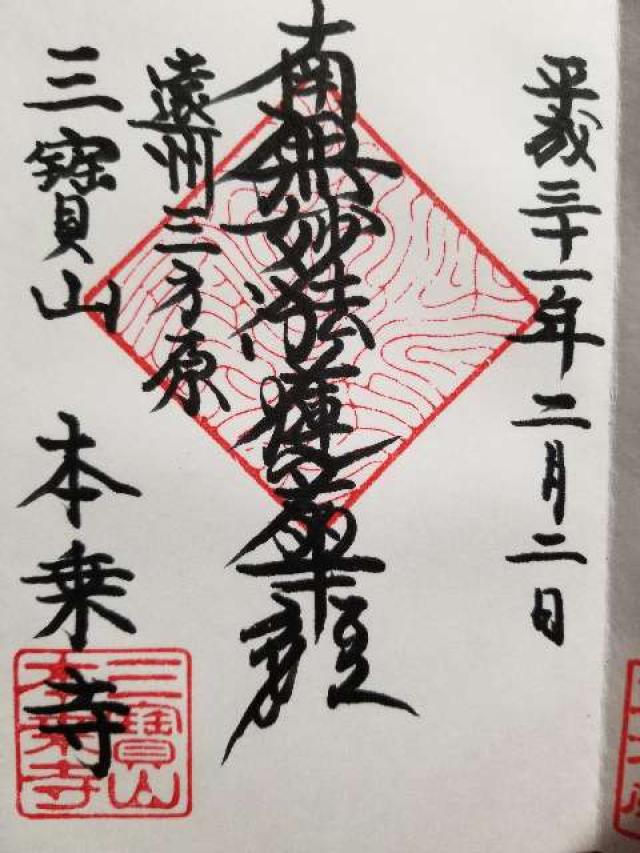 平成三十一年二月二日
南無妙法蓮華経
遠州三方原
三寶山 本乗寺
三寶山
本乗寺